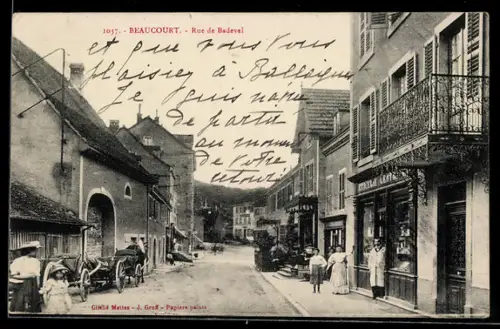 1057. - BEAUCOURT. - Rue de Badevel
et que vous vous
plaisiez à Ballaigues
Je puis navré
de partir
au moment
de votre
retour
Cliché Mettez - J. Groff - Papiers peints